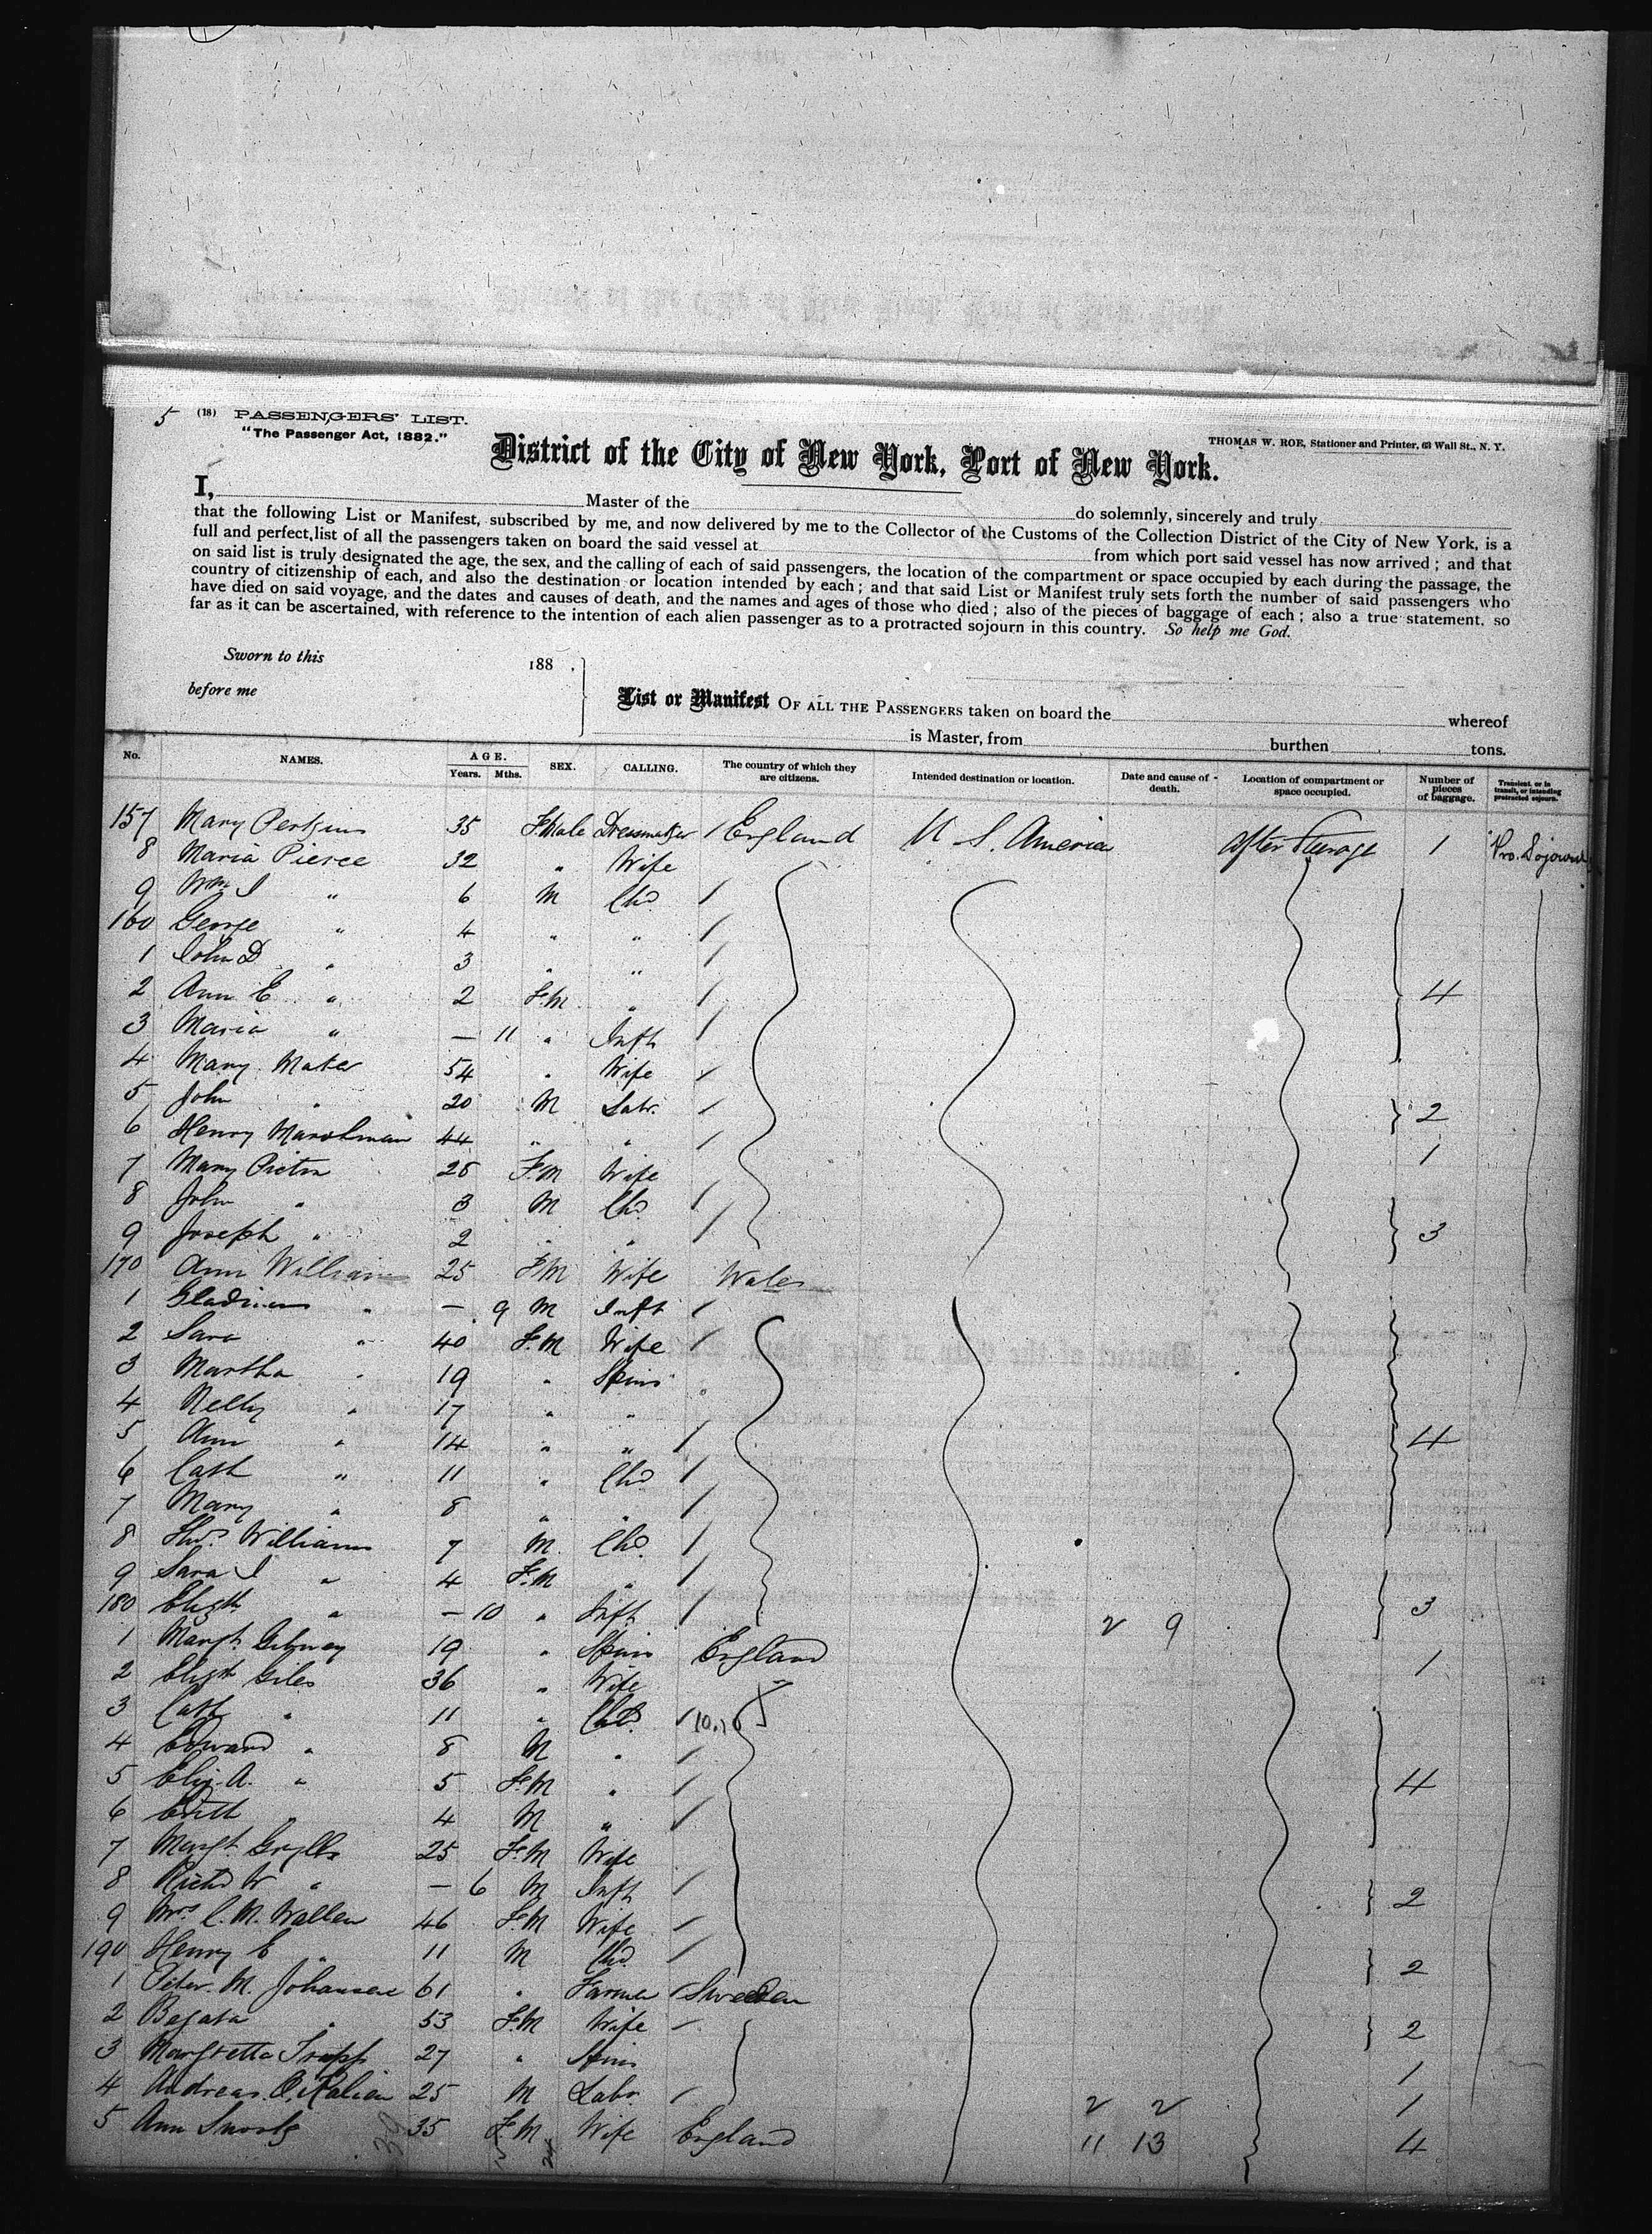 5 (18) PASSENGERS' LIST.
"The Passenger Act, 1882."
THOMAS W. ROE, Stationer and Printer, 63 Wall St., N. Y.
District of the City of New York, Port of New York.
I, Master of the do solemnly, sincerely and truly
that the following List or Manifest, subscribed by me, and now delivered by me to the Collector of the Customs of the Collection District of the City of New York, is a
full and perfect list of all the passengers taken on board the said vessel at from which port said vessel has now arrived; and that
on said list is truly designated the age, the sex, and the calling of each of said passengers, the location of the compartment or space occupied by each during the passage, the
country of citizenship of each, and also the destination or location intended by each; and that said List or Manifest truly sets forth the number of said passengers who
have died on said voyage, and the dates and causes of death, and the names and ages of those who died; also of the pieces of baggage of each; also a true statement, so
far as it can be ascertained, with reference to the intention of each alien passenger as to a protracted sojourn in this country. So help me God.
Sworn to this 188 .
before me
List or Manifest OF ALL THE PASSENGERS taken on board the whereof
is Master, from burthen tons.
No. NAMES. AGE. Years. Mths. SEX. CALLING. The country of which they are citizens. Intended destination or location. Date and cause of death. Location of compartment or space occupied. Number of pieces of baggage. Transient, or in transit, or intending protracted sojourn.
157 Mary Perkins 35 Female Dressmaker England U S. America After Steerage 1 Pro. Sojourn
8 Maria Pierce 32 " Wife
9 Wm J " 6 M Chd
160 George " 4 " "
1 John D " 3 " "
2 Ann E " 2 F.M " 4
3 Maria " — 11 " Inft
4 Mary Maker 54 " Wife
5 John " 20 M Labr. 2
6 Henry Marshman 44 " " 1
7 Mary 25 F.M Wife
8 John " 3 M Chd
9 Joseph " 2 " " 3
170 Ann William 25 F.M Wife Wales
1 " — 9 M Inft
2 Sara " 40 F.M Wife
3 Martha " 19 " Spins
4 Nelly " 17 " "
5 Ann " 14 " " 4
6 Cath " 11 " Chd
7 Mary " 8 " "
8 Thos Williams 7 M Chd
9 Sara J " 4 F.M "
180 Elizth " — 10 " Inft 2 9 3
1 Margt 19 " Spins England 1
2 Elizth Giles 36 " Wife
3 Cath " 11 " Chd
4 Edward " 8 M "
5 Eliz. A. " 5 F.M " 4
6 " 4 M "
7 Margt. Grylls 25 F.M Wife
8 Richd W " — 6 M Inft 2
9 Mrs C. M. Wallen 46 F.M Wife
190 Henry E " 11 M Chd 2
1 Peter. M. Johansen 61 " Farmer Sweden
2 " 53 F.M Wife 2
3 Margretta 27 " Spins 1
4 Andreas 25 M Labr 2 2 1
5 Ann 35 F.M Wife England 11 13 4